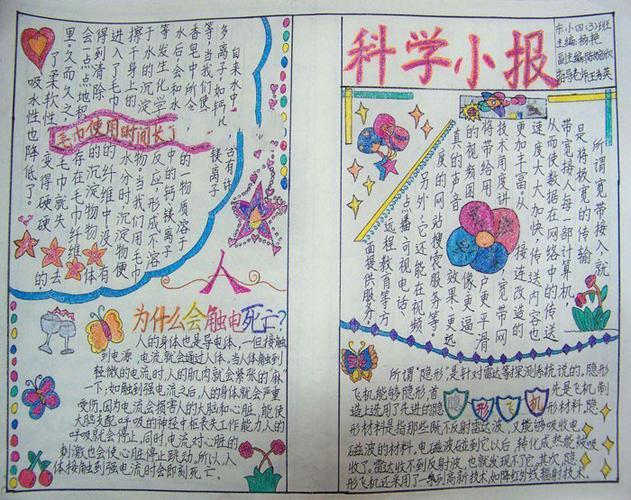 科学小报
东小四(3)班
主编:杨艳
所谓宽带接入,就
是将极宽的传输
带宽接入每一部计算机,
从而使数据在网络中的传送
速度大大加快,传送内容也
更加丰富。从
接连改造的
技术角度讲,
宽带网
将带给用
户更平滑
的视频图
像更逼
真的声音
效果、更迅
度的网站搜索服务等,
另外,它还能在视频
点播、可视电话、
远程教育等方
面提供服务。
隐形飞机
所谓“隐形”,是针对雷达等探测系统说的。隐形
飞机能够隐形,首
先是飞机制
造上选用了先进的隐
形材料。隐
形材料是指那些既不反射雷达波,又能够吸收电
磁波的材料。电磁波碰到它以后转化成热能被吸
收了。雷达收不到反射波,也就发现不了它。其次,隐
形飞机还采用了一系列高新技术,如降红外线辐射技术。
毛巾使用时间长了
自来水中,
含有许
多离子,如钙
镁离子
等,当我们使
香皂中所含
的一物质溶于
水后,会和水
中的钙镁离子
等发生化学
反应,形成不溶
于水的沉淀
物。当我们用毛巾
擦干身上的
水分时,沉淀物便
进入了毛巾
的纤维中,没有
得到清除
的沉淀物物体
会一点点地积
存在毛巾纤维
里。久而久之,
毛巾就失去
了柔软性,
变得硬硬的
吸水性也降低了。
人为什么会触电死亡?
人的身体也是导电体,一但接触
到电源,电流就会通过人体,当人体触到
轻微的电流时,人的肌肉就会紧张的“麻”
一下;如触到强电流之后,人的身体就会严重
受伤。因为电流会损害人的大脑和心脏,能使
大脑支配呼吸的神经中枢丧失工作能力,人的
呼吸就会停止。同时,电流对心脏的
刺激也会使心脏停止跳动,所以,人
体接触到强电流时会即刻死亡。